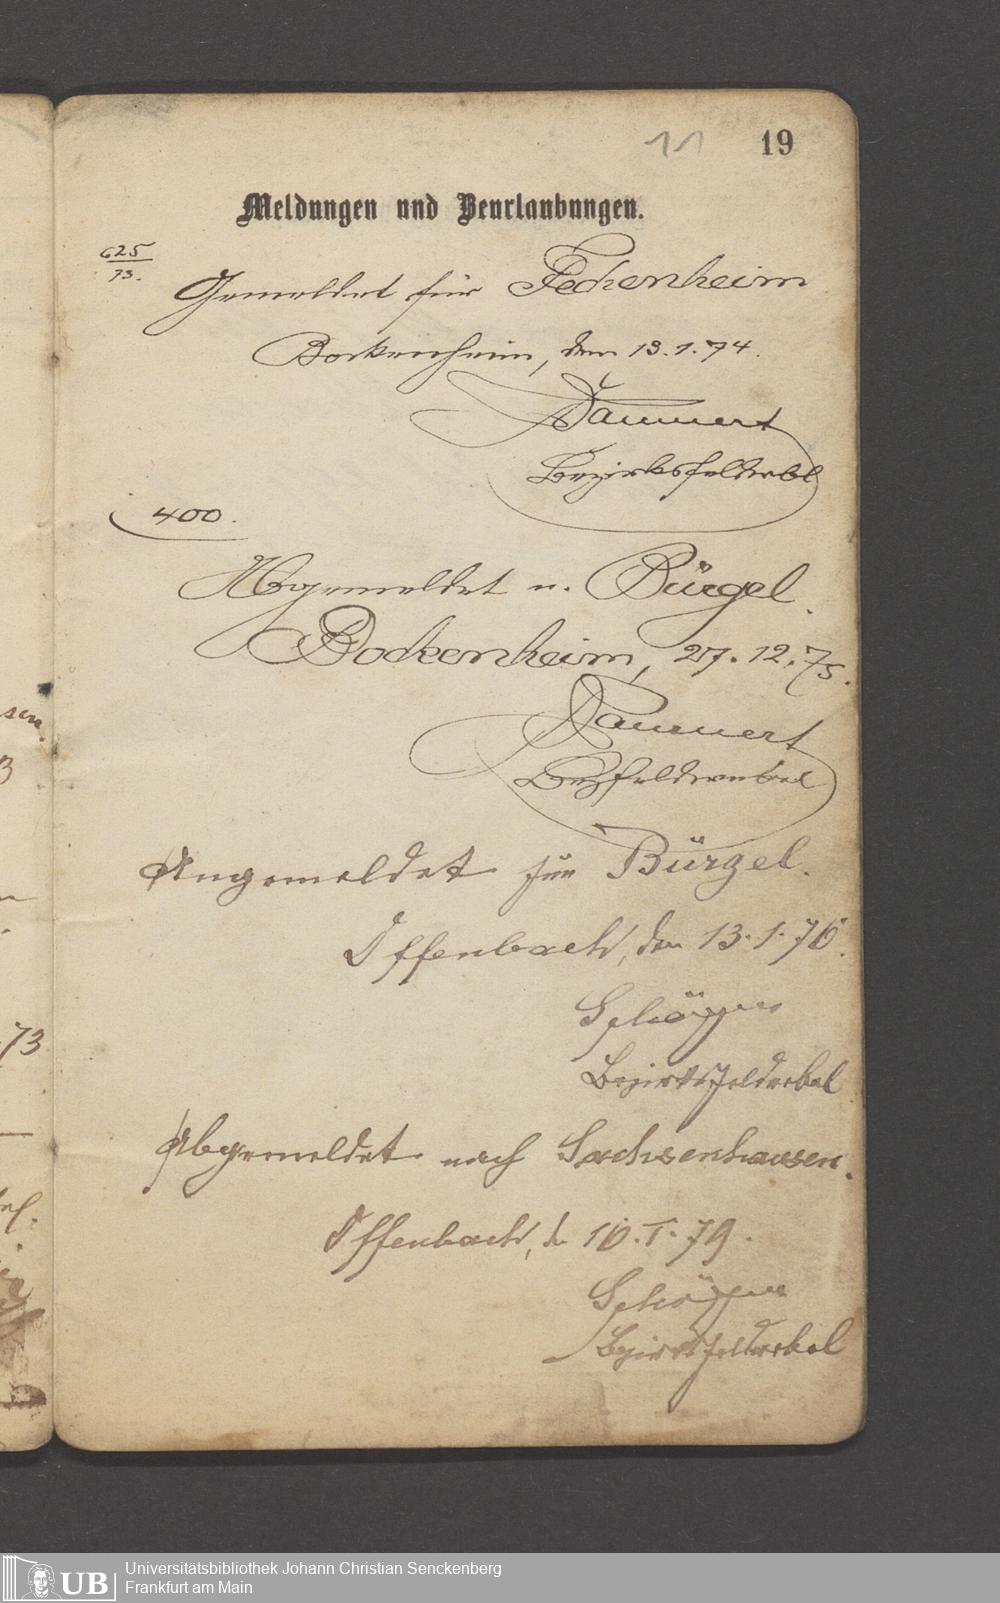 11 19
Meldungen und Beurlaubungen.
625
73.
Gemeldet für Fechenheim
Bockenheim, den 13.1.74.
Dammert
Bezirksfeldwbl
400.
Abgemeldet n. Bürgel.
Bockenheim, 27.12.75.
Dammert
Bezfeldwebel
Angemeldet für Bürgel.
Offenbach, den 13.1.76.
Bezirksfeldwebel
Abgemeldet nach Sachsenhausen.
Offenbach, d. 10.I.79.
Bezirksfeldwebel
sen.
3
73
UB
Universitätsbibliothek Johann Christian Senckenberg
Frankfurt am Main